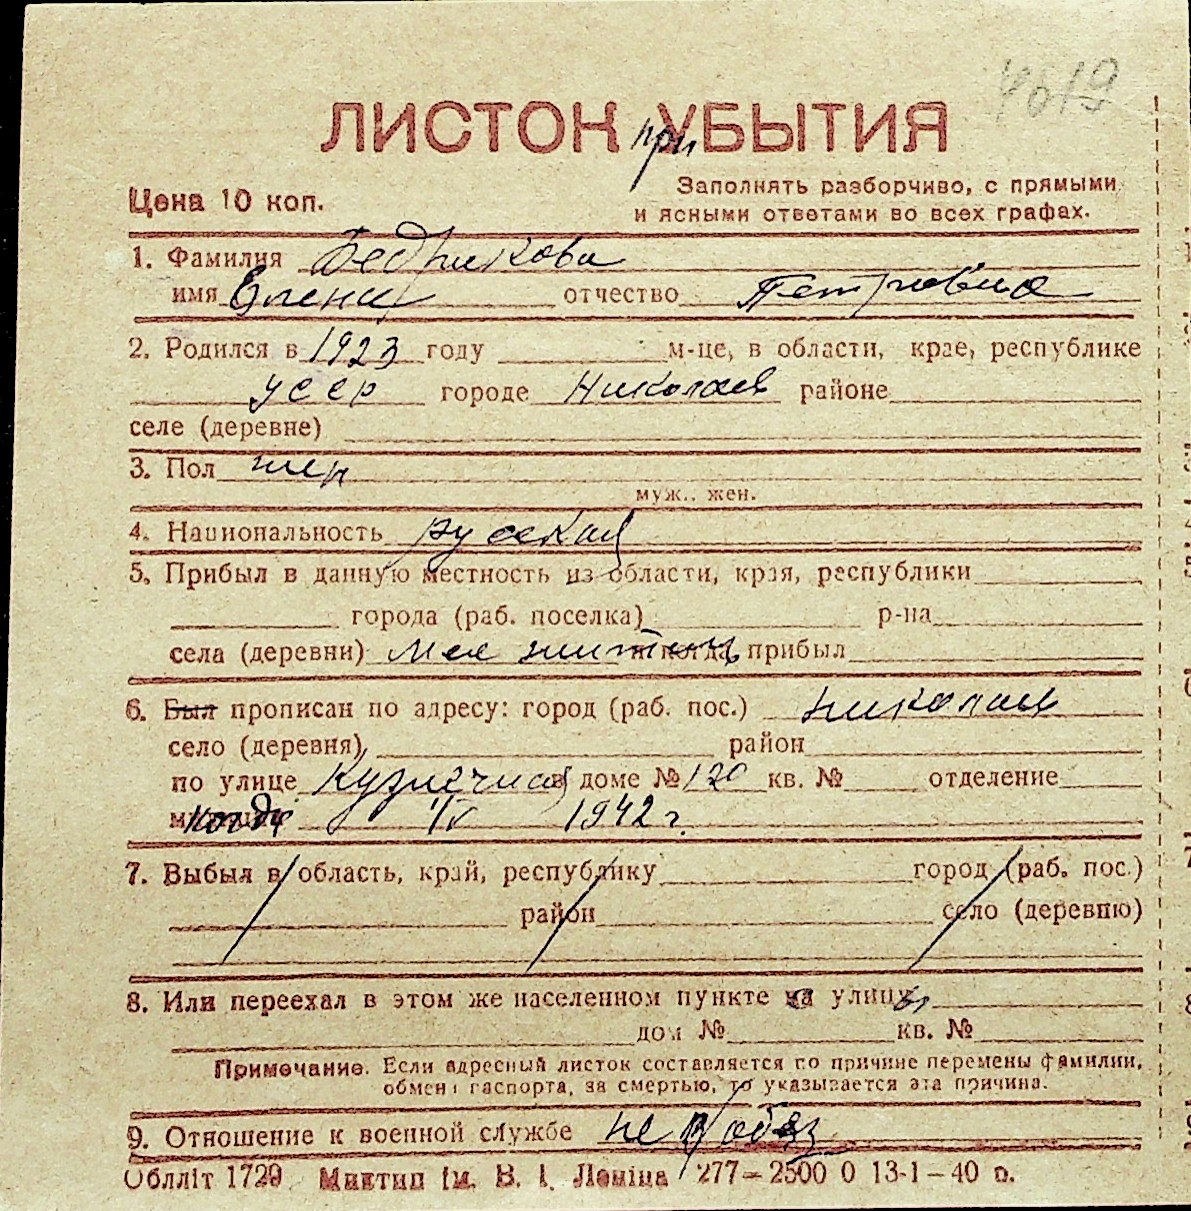 4619
ЛИСТОК при УБЫТИЯ
Цена 10 коп.
Заполнять разборчиво, с прямыми
и ясными ответами во всех графах.
1. Фамилия Бедрикова
имя Елена отчество Петровна
2. Родился в 1923 году м-це, в области, крае, республике
УССР городе Николаев районе
селе (деревне)
3. Пол жен
муж.. жен.
4. Национальность русская
5. Прибыл в данную местность из области, края, республики
города (раб. поселка) р-на
села (деревни) мес житель и когда прибыл
6. Был прописан по адресу: город (раб. пос.) Николаев
село (деревня) район
по улице Кузнечная в доме № 120 кв. № отделение
когда 1/IV 1942 г.
7. Выбыл в область, край, республику город (раб. пос.)
район село (деревню)
8. Или переехал в этом же населенном пункте с улицы
дом № кв. №
Примечание. Если адресный листок составляется по причине перемены фамилии,
обмена паспорта, за смертью, то указывается эта причина.
9. Отношение к военной службе не в/обяз
Обллiт 1729 Миктип iм. В. I. Ленiна 277—2500 0 13-1—40 р.